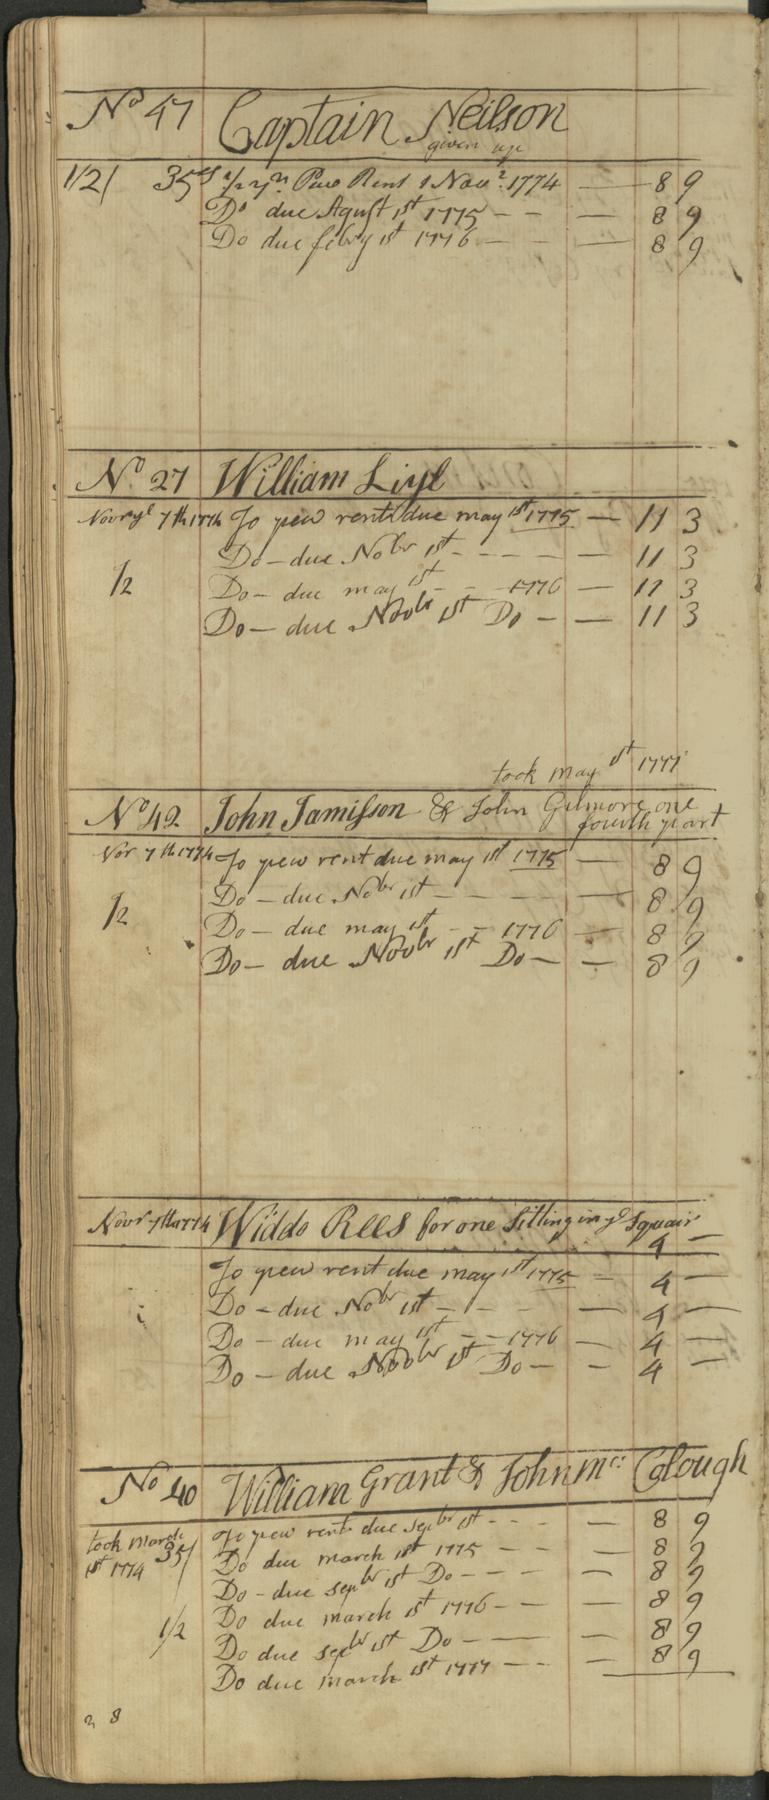 No 47 Captain Neilson
given up
1/2/ 35s 1/2 yr Pew Rent 1 Nov 1774 — 8 9
Do due Agust 1st 1775 - - — 8 9
Do due febry 1st 1776 — - — 8 9
No 27 William Liyl
7th 1774 To pew rent due may 1st 1775 — 11 3
Do — due Nobr 1st - - - - — 11 3
1/2 Do — due may 1st - - 1776 — 11 3
Do — due Noobr 1st Do - — 11 3
took may 1st 1777
No 42 John Jamisson & John Gilmore one
fourth part
Nor 7th 1774 To pew rent due may 1st 1775 — 8 9
Do — due Nobr 1st - - - - — 8 9
1/2 Do — due may 1st - - 1776 — 8 9
Do — due Noobr 1st Do — — 8 9
Novr 7th 1774 Widdo Rees for one Sitting in ye Squair
4 —
To pew rent due may 1st 1775 — 4 —
Do — due Nobr 1st - - - — 4 —
Do — due may 1st - - 1776 — 4 —
Do — due Noobr 1st Do — — 4 —
No 40 William Grant & John Mc: Colough
To pew rent due sepbr 1st - - - — 8 9
took march 35/ Do due march 1st 1775 - - — 8 9
1st 1774 Do - due sepbr 1st Do - - - — 8 9
1/2 Do due march 1st 1776 - - — 8 9
Do due sepbr 1st Do - — — 8 9
Do due march 1st 1777 - - — 8 9
2 8